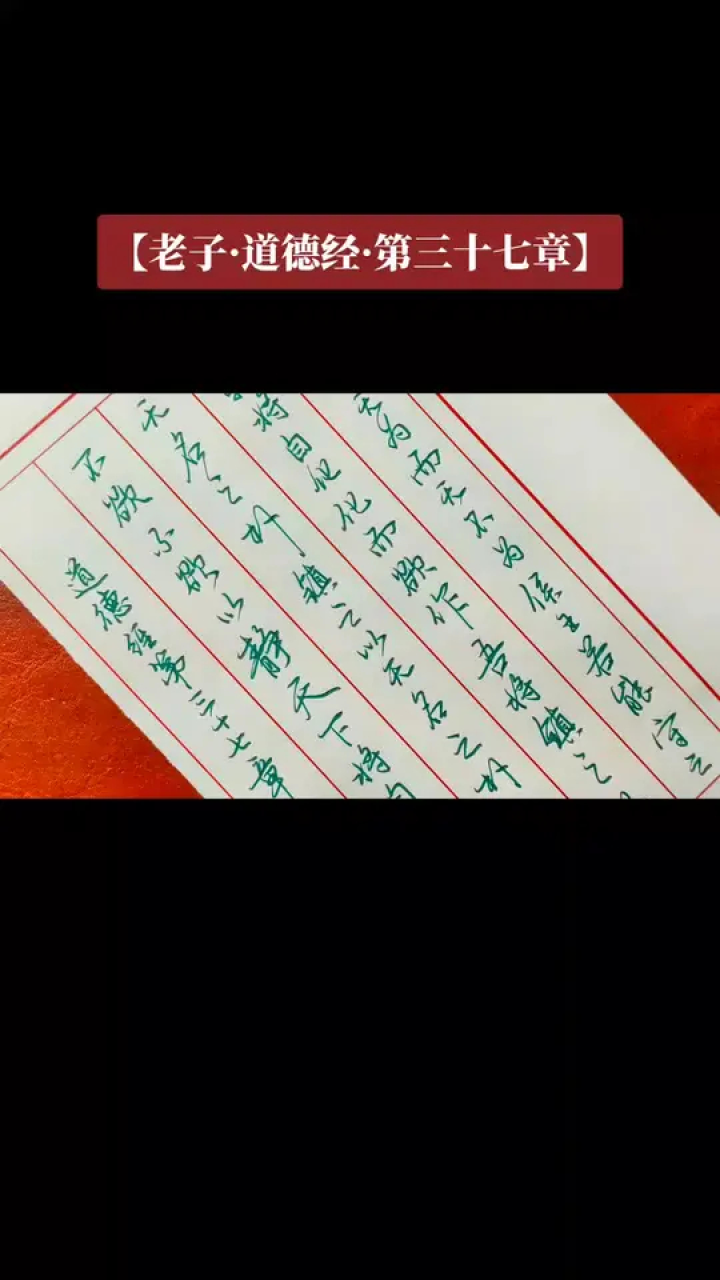 【老子·道德经·第三十七章】
无为而无不为侯王若能守之
将自化化而欲作吾将鎮之
无名之朴鎮之以无名之朴
不欲不欲以静天下将自
道德經第三十七章